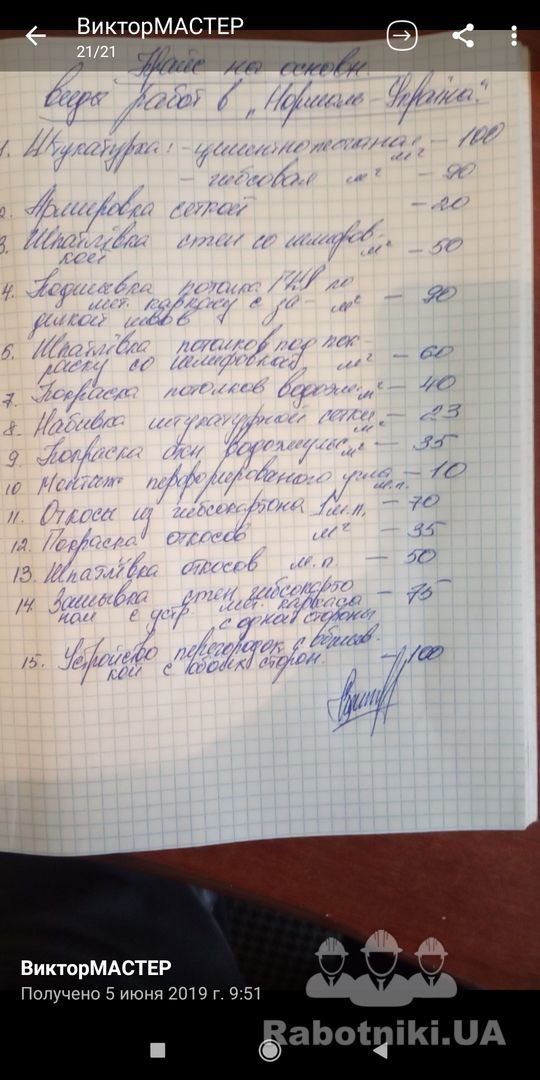 ВикторМАСТЕР
21/21
Прайс на основн.
виды работ в "Нормаль-Україна."
1. Штукатурка: - цементнопесчаная м² - 100
- гибсовая м² - 90
2. Армировка сеткой - 20
3. Шпатлівка стен со шлифов-
кой м² - 50
4. Подшывка потолка ГКЛ по
мет. каркасу с за- м² - 90
делкой швов
6. Шпатлівка потолков под пок-
раску со шлифовкой м² - 60
7. Покраска потолков водоэм. м² - 40
8. Набивка штукатурной сетки м² - 23
9. Покраска стен водоэмульс. м² - 35
10 Монтаж перфорированого угла м.п. - 10
11. Откосы из гибсокартона 1м.п. - 70
12. Покраска откосов м² - 35
13. Шпатлівка откосов м.п. - 50
14. Зашывка стен гибсокарто
ном с устр. мет. каркаса - 75
с одной стороны
15. Устройство перегородок с обшив.
кой с обоих сторон. - 100
ВикторМАСТЕР
Получено 5 июня 2019 г. 9:51
Rabotniki.UA